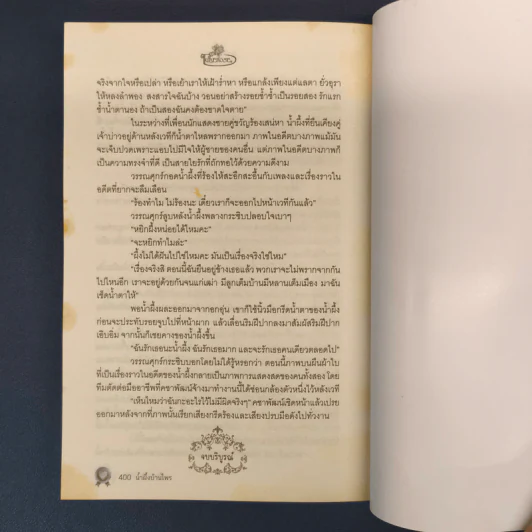 จริงจากใจหรือเปล่า หรือเย้าเราให้เฝ้าร่ำหา หรือแกล้งเพียงแต่แลตา ยั่วอุรา
ให้หลงลำพอง สงสารใจฉันบ้าง วอนอย่าสร้างรอยช้ำซ้ำเป็นรอยสอง รักแรก
ช้ำน้ำตานอง ถ้าเป็นสองฉันคงต้องขาดใจตาย"
ในระหว่างที่เพื่อนนักแสดงชายคู่ขวัญร้องเสน่หา น้ำผึ้งที่ยืนเคียงคู่
เจ้าบ่าวอยู่ด้านหลังเวทีก็น้ำตาไหลพรากออกมา ภาพในอดีตบางภาพแม้มัน
จะเจ็บปวดเพราะแอบไปมีใจให้ผู้ชายของคนอื่น แต่ภาพในอดีตบางภาพก็
เป็นความทรงจำที่ดี เป็นสายใยรักที่ถักทอไว้ด้วยความดีงาม
วรรณศุกร์กอดน้ำผึ้งที่ร้องไห้สะอึกสะอื้นกับเพลงและเรื่องราวใน
อดีตที่ยากจะลืมเลือน
"ร้องทำไม ไม่ร้องนะ เดี๋ยวเราก็จะออกไปหน้าเวทีกันแล้ว"
วรรณศุกร์ลูบหลังน้ำผึ้งพลางกระซิบปลอบใจเบาๆ
"หยิกผึ้งหน่อยได้ไหมคะ"
"จะหยิกทำไมล่ะ"
"ผึ้งไม่ได้ฝันไปใช่ไหมคะ มันเป็นเรื่องจริงใช่ไหม"
"เรื่องจริงสิ ตอนนี้ฉันยืนอยู่ข้างเธอแล้ว พวกเราจะไม่พรากจากกัน
ไปไหนอีก เราจะอยู่ด้วยกันจนแก่เฒ่า มีลูกเต็มบ้านมีหลานเต็มเมือง มาฉัน
เช็ดน้ำตาให้"
พอน้ำผึ้งผละออกมาจากอกอุ่น เขาก็ใช้นิ้วมือกรีดน้ำตาของน้ำผึ้ง
ก่อนจะประทับรอยจูบไปที่หน้าผาก แล้วเลื่อนริมฝีปากลงมาสัมผัสริมฝีปาก
เอิบอิ่ม จากนั้นก็เชยคางของน้ำผึ้งขึ้น
"ฉันรักเธอนะน้ำผึ้ง ฉันรักเธอมาก และจะรักเธอคนเดียวตลอดไป"
วรรณศุกร์กระซิบบอกโดยไม่ได้รู้หรอกว่า ตอนนี้ภาพบนผืนผ้าใบ
ที่เป็นเรื่องราวในอดีตของน้ำผึ้งกลายเป็นภาพการแสดงสดของคนทั้งสอง โดย
ทีมตัดต่อมืออาชีพที่คชาพัฒน์จ้างมาทำงานนี้ได้ซ่อนกล้องตัวหนึ่งไว้หลังเวที
"เห็นไหมว่าฉันกะอะไรไว้ไม่มีผิดจริงๆ" คชาพัฒน์เชิดหน้าแล้วเปรย
ออกมาหลังจากที่ภาพนั้นเรียกเสียงกรีดร้องและเสียงปรบมือดังไปทั่วงาน
จบบริบูรณ์
400 น้ำผึ้งบ้านไพร